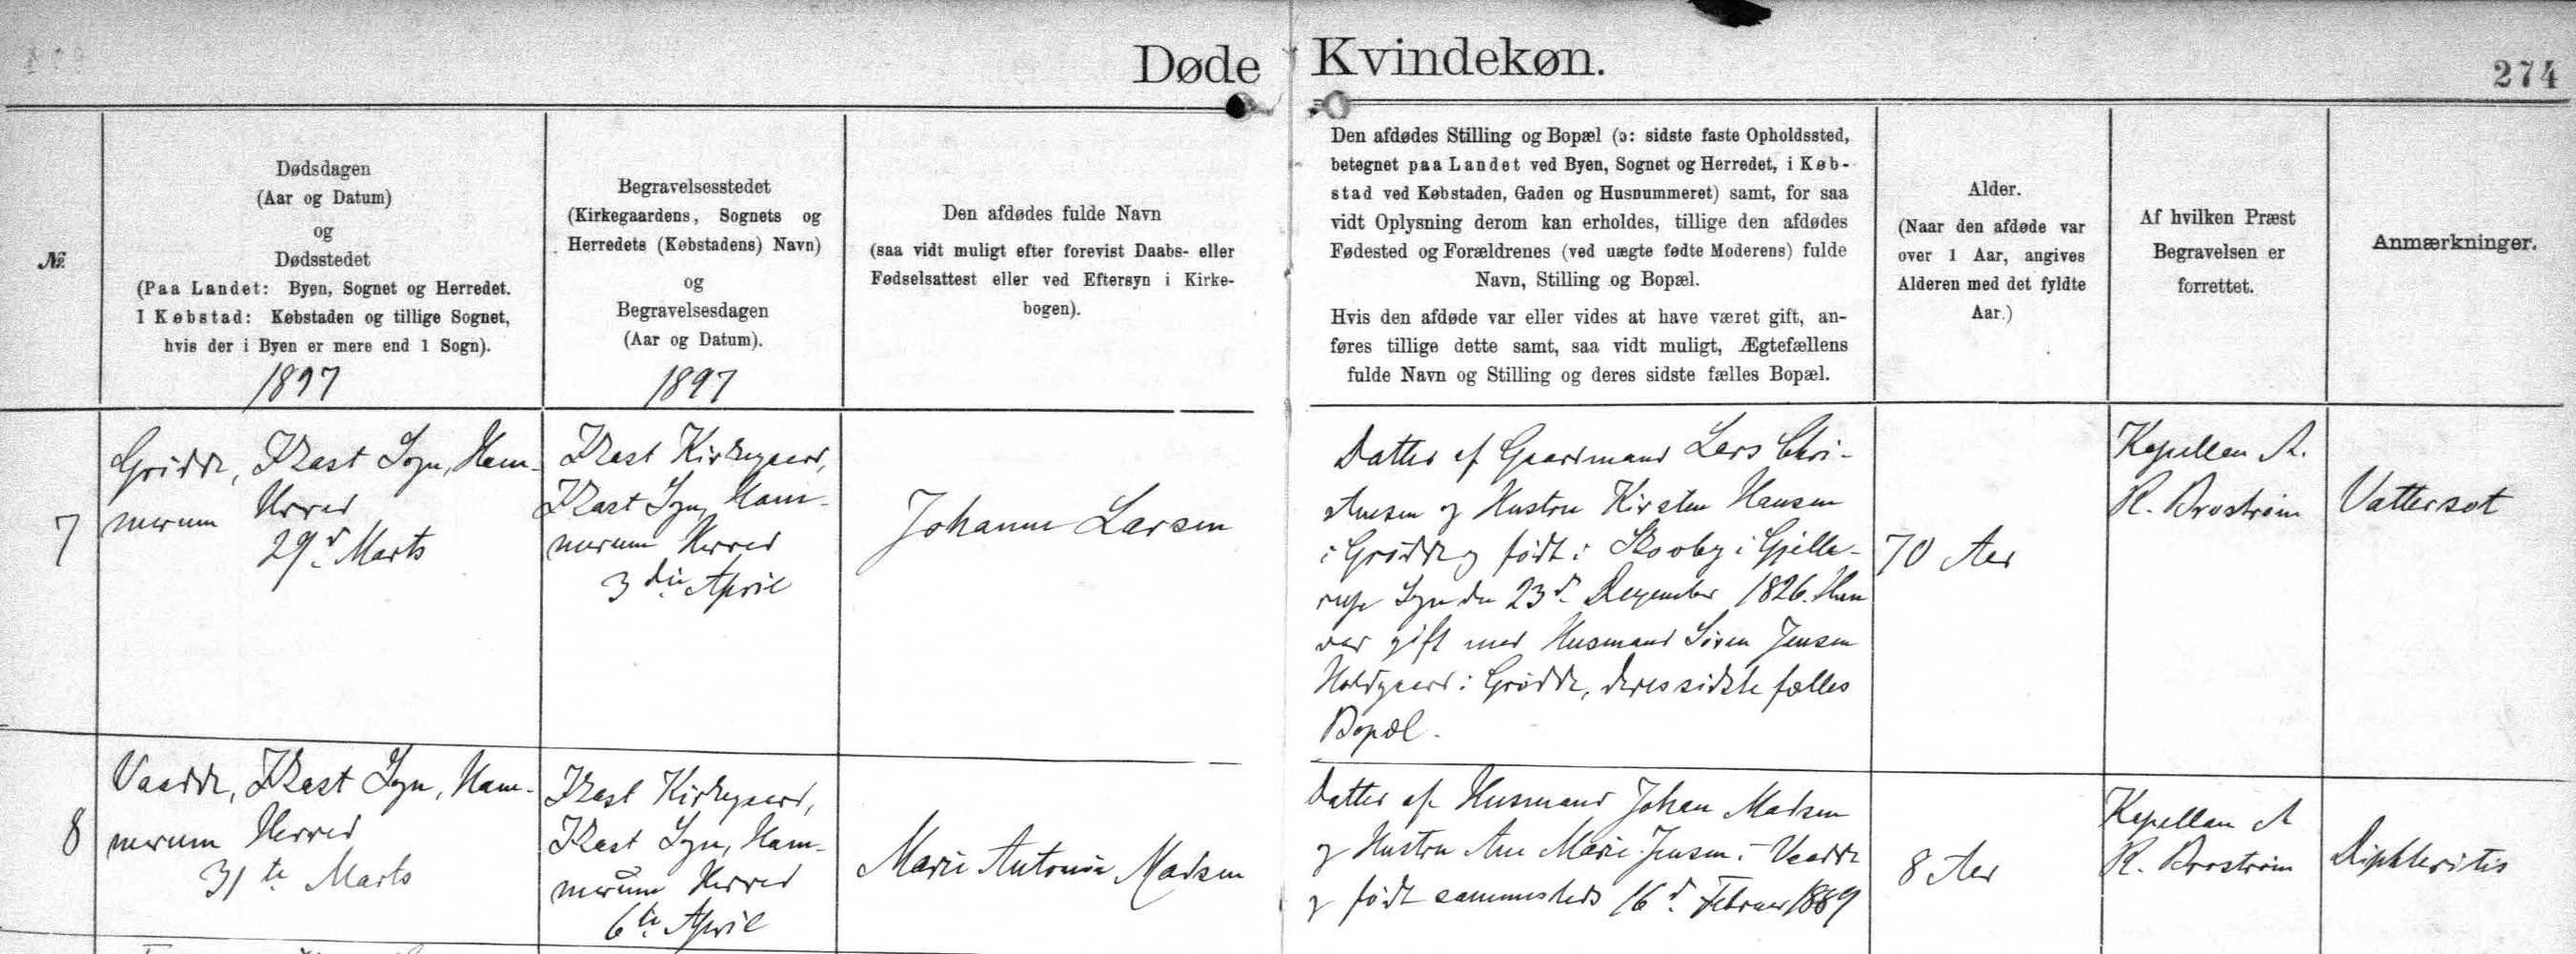 Døde Kvindekøn.
274
№
Dødsdagen
(Aar og Datum)
og
Dødsstedet
(Paa Landet: Byen, Sognet og Herredet.
I Købstad: Købstaden og tillige Sognet,
hvis der i Byen er mere end 1 Sogn).
1897
Begravelsesstedet
(Kirkegaardens, Sognets og
Herredets (Købstadens) Navn)
og
Begravelsesdagen
(Aar og Datum).
1897
Den afdødes fulde Navn
(saa vidt muligt efter forevist Daabs- eller
Fødselsattest eller ved Eftersyn i Kirke-
bogen).
Den afdødes Stilling og Bopæl (ɔ: sidste faste Opholdssted,
betegnet paa Landet ved Byen, Sognet og Herredet, i Køb-
stad ved Købstaden, Gaden og Husnummeret) samt, for saa
vidt Oplysning derom kan erholdes, tillige den afdødes
Fødested og Forældrenes (ved uægte fødte Moderens) fulde
Navn, Stilling og Bopæl.
Hvis den afdøde var eller vides at have været gift, an-
føres tillige dette samt, saa vidt muligt, Ægtefællens
fulde Navn og Stilling og deres sidste fælles Bopæl.
Alder.
(Naar den afdøde var
over 1 Aar, angives
Alderen med det fyldte
Aar.)
Af hvilken Præst
Begravelsen er
forrettet.
Anmærkninger.
7
Grødde, Ikast Sogn, Ham-
merum Herred
29d. Marts
Ikast Kirkegaard,
Ikast Sogn, Ham-
merum Herred
3die April
Johanne Larsen
Datter af Gaardmand Lars Chri-
stensen og Hustru Kirsten Hansen
i Grødde og født i Skovby i Gjelle-
rup Sogn den 23d. December 1826. Hun
var gift med Husmand Søren Jensen
Holdgaard i Grødde, deres sidste fælles
Bopæl.
70 Aar
Kapellan A.
R. Brostrøm
Vattersot
8
Vaadde, Ikast Sogn, Ham-
merum Herred
31te Marts
Ikast Kirkegaard,
Ikast Sogn, Ham-
merum Herred
6te April
Marie Antonie Madsen
Datter af Husmand Johan Madsen
og Hustru Ane Marie Jensen i Vaadde
og født sammesteds 16d. Februar 1889
8 Aar
Kapellan A
R. Brostrøm
Diphteritis